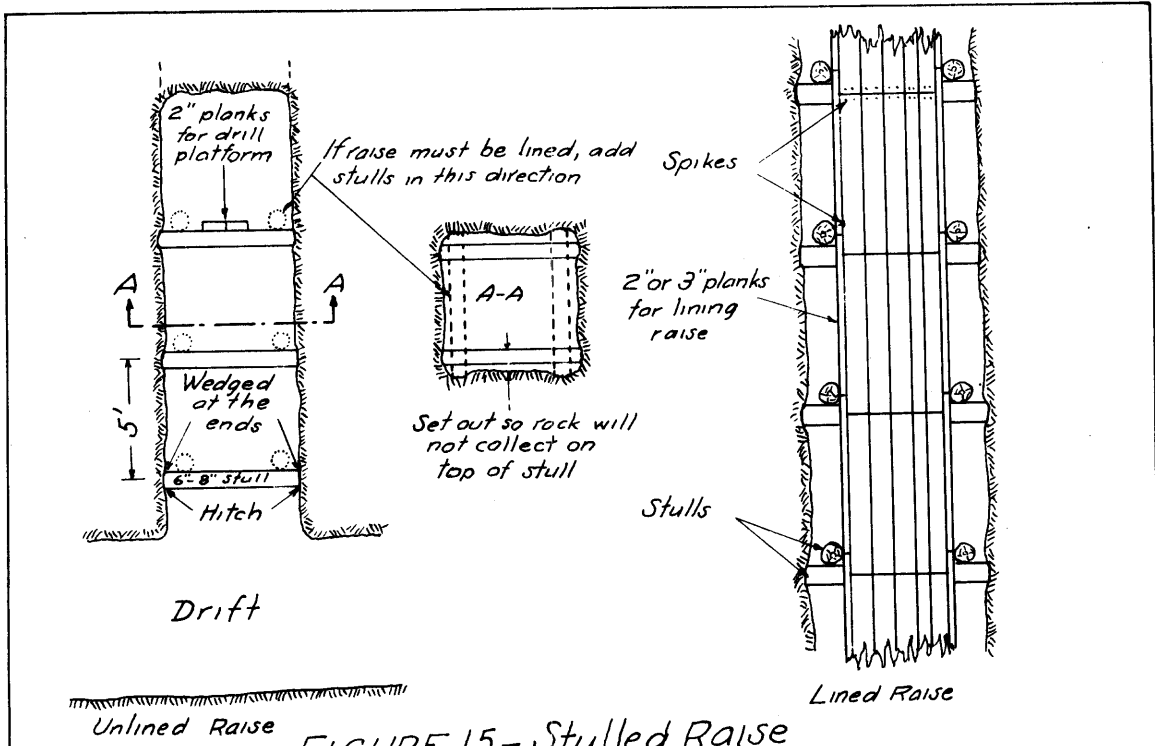 2" planks
for drill
platform
If raise must be lined, add
stulls in this direction
A
A
A-A
5'
Wedged
at the
ends
6"-8" Stull
Hitch
Set out so rock will
not collect on
top of stull
Drift
Unlined Raise
Spikes
2" or 3" planks
for lining
raise
Stulls
Lined Raise
FIGURE 15- Stulled Raise